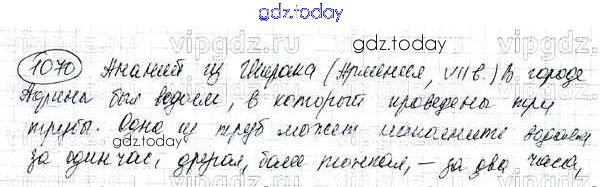 gdz.today
gdz.today
1070 Ананий из Ширака (Армения, VII в.) В городе
Афины был водоем, в который проведены три
трубы. Одна из труб может наполнить водоем
за один час, другая, более тонкая, – за два часа,